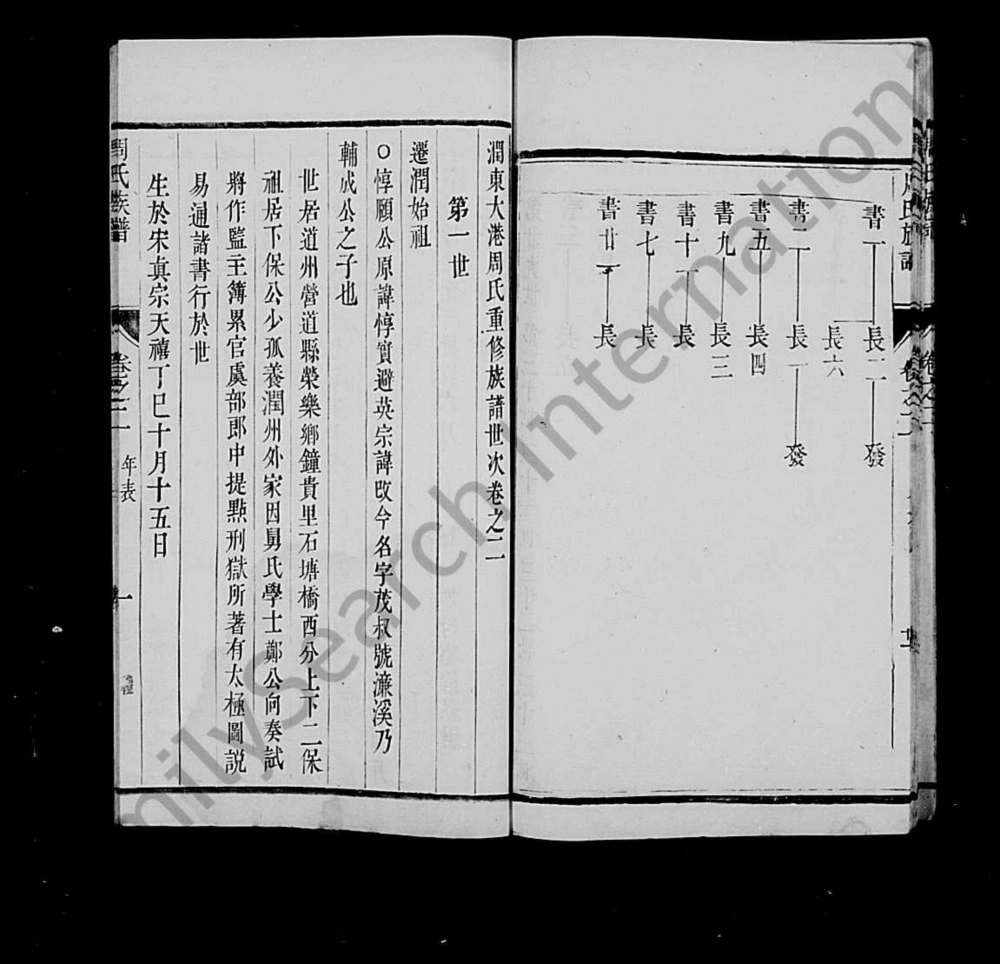 周氏族譜
卷之二
書一
長二
發
長六
書二
長一
發
書五
長四
書九
長三
書十一
長
書七
長
書廿一
長
潤東大港周氏重修族譜世次卷之二
第一世
遷潤始祖
○惇頤公原諱惇實避英宗諱改今名字茂叔號濂溪乃
輔成公之子也
世居道州營道縣榮樂鄉鐘貴里石塘橋西分上下二保
祖居下保公少孤養潤州外家因舅氏學士鄭公向奏試
將作監主簿累官虞部郎中提點刑獄所著有太極圖説
易通諸書行於世
生於宋真宗天禧丁巳十月十五日
周氏族譜
卷之二
年表
一
FamilySearch International